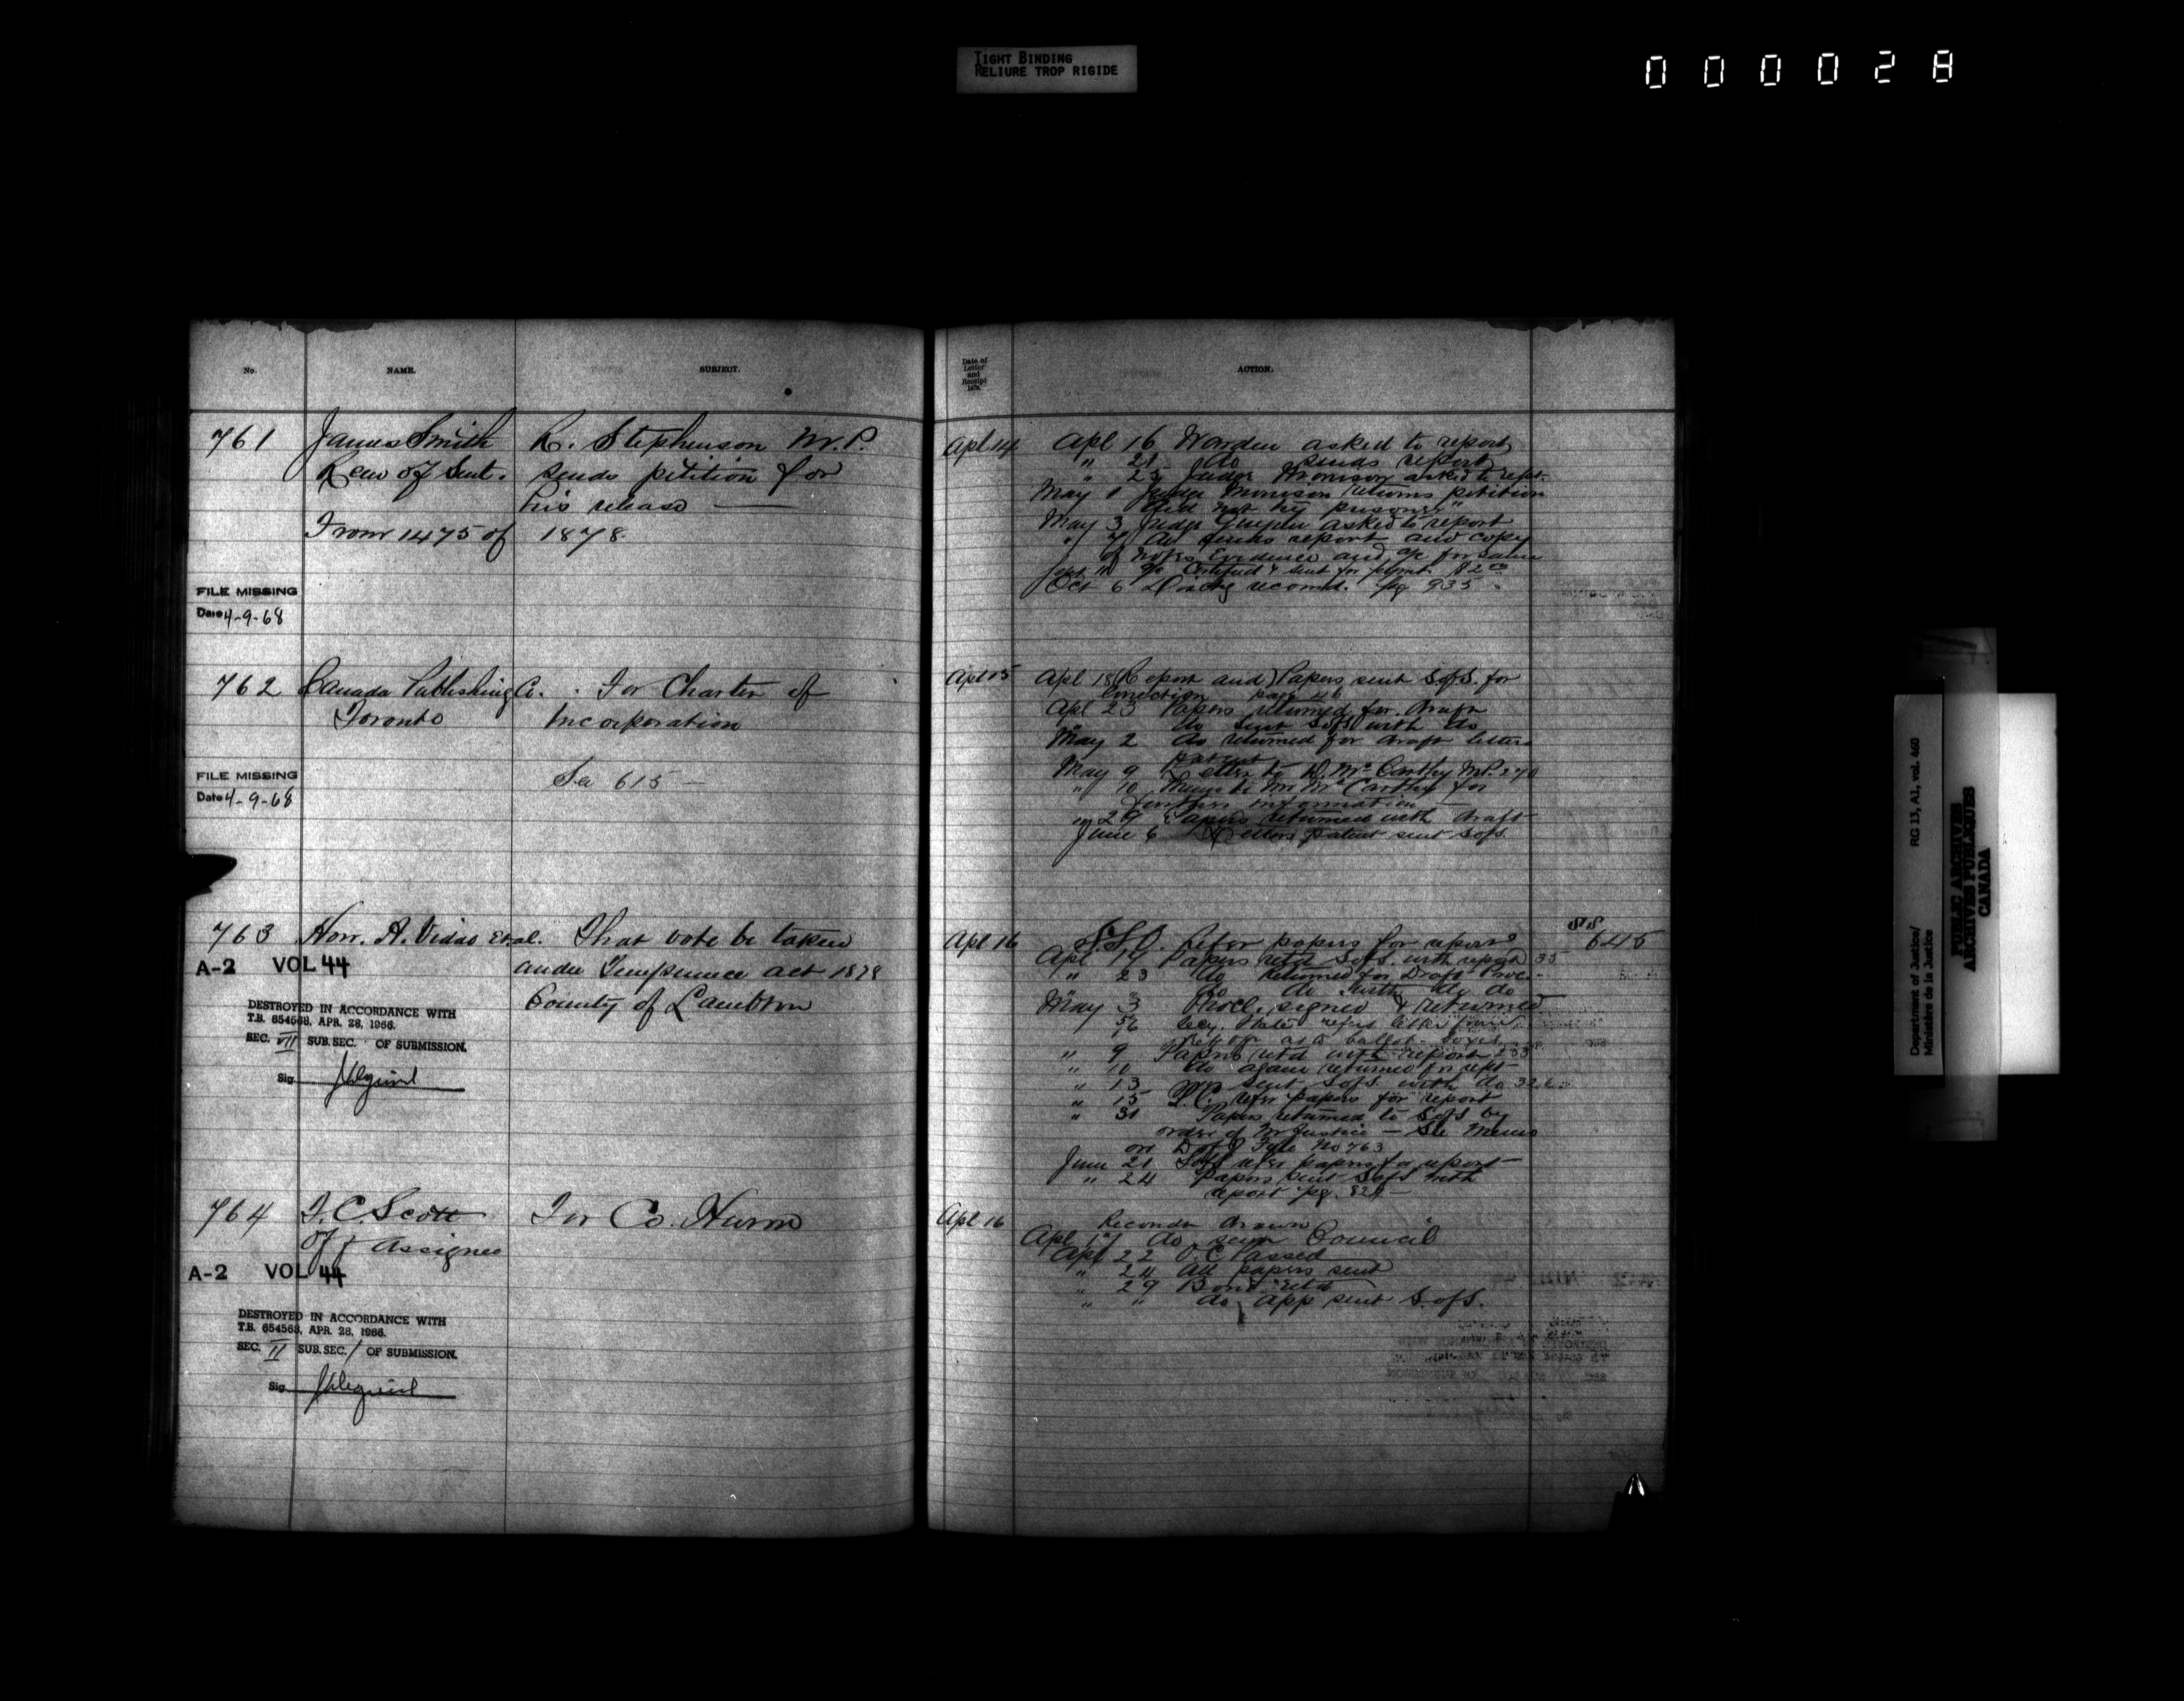 TIGHT BINDING
RELIURE TROP RIGIDE
000028
No.
NAME.
SUBJECT.
761
James Smith
Rem of Sent.
From 1475 of 1878
R. Stephenson M.P.
sends petition for
his release
FILE MISSING
Date 4-9-68
762
Canada Publishing Co.
Toronto
For Charter of
Incorporation
See 615
FILE MISSING
Date 4-9-68
763
Hon. A. Vidal et al.
That vote be taken
under Temperance act 1878
County of Lambton
A-2 VOL 44
DESTROYED IN ACCORDANCE WITH
T.B. 654568, APR. 28, 1966.
SEC. VII SUB. SEC. OF SUBMISSION.
Sig.
764
Off Assignee
For Co. Huron
A-2 VOL 44
DESTROYED IN ACCORDANCE WITH
T.B. 654568, APR. 28, 1966.
SEC. II SUB. SEC. 1 OF SUBMISSION.
Sig.
Date of
Letter
and
Receipt
ACTION.
Apl 14
Apl 16 Warden asked to report
" 21 do sends report
" 23 Judge Morrison asked to rept.
May 1 Judge Morrison returns petition
"did not try prisoner"
May 3 Judge asked to report
" 7 do sends report and copy
of notes Evidence and a/c for same
a/c Certified & sent for paymt. $2.00
Oct 6 Dischg recomd. pg 935
Apl 15
Apl 18 (Report and) Papers sent S.ofS. for
Correction page 46
Apl 23 Papers returned for draft
" do sent SofS with do
May 2 do returned for draft letters
patent
May 9 Letter to D. McCarthy M.P. 270
" 10 Memo to Mr McCarthy for
further information
" 29 Papers returned with draft
June 6 Letters patent sent SofS.
Apl 16
refer papers for report
645
Apl 19 Papers retd SofS. with report 35
" 23 do returned for Draft Proc.
" do do with do do
May 3 Procl. signed & returned
Secy. State refers letter from
as to ballot-boxes
" 9 Papers retd with report 233
" 10 do again returned for rept
" 13 sent SofS. with do
" 15 P.C. refer papers for report
" 31 Papers returned to SofS by
order of Mr Justice — See Memo
on D of J File No 763
June 21 SofS refer papers for report
" 24 Papers sent SofS with
report pg. 824
Apl 16
Recomdn drawn
Apl 17 do sent Council
Apl 22 O.C. Passed
" 24 All papers sent
" 29 Bond retd
" " do, app sent S.ofS.
Department of Justice/
Ministère de la Justice
RG 13, A1, vol. 460
PUBLIC ARCHIVES
ARCHIVES PUBLIQUES
CANADA